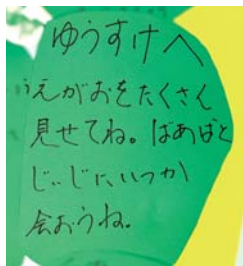 ゆうすけへ
うえがおをたくさん
見せてね。ばあばと
じぃじに、いつか
会おうね。